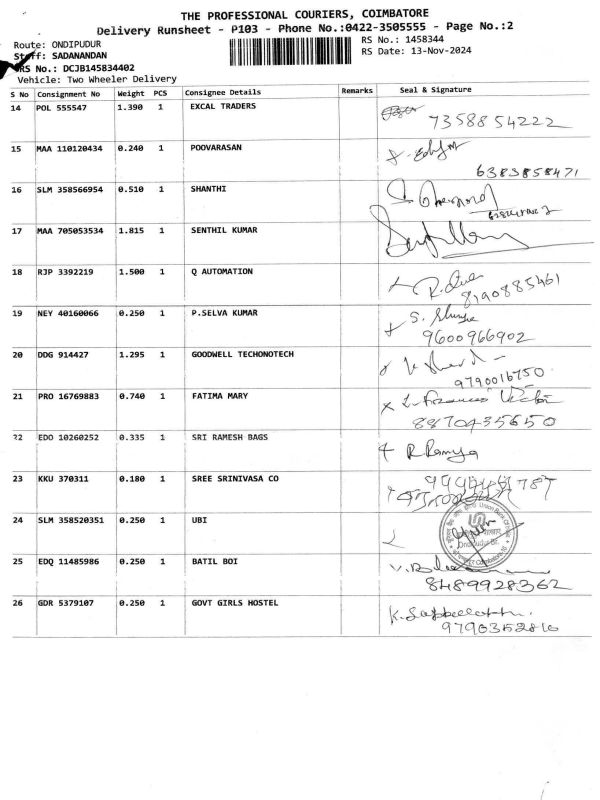 THE PROFESSIONAL COURIERS, COIMBATORE
Delivery Runsheet - P103 - Phone No.:0422-3505555 - Page No.:2
Route: ONDIPUDUR
RS No.: 1458344
Staff: SADANANDAN
RS Date: 13-Nov-2024
RS No.: DCJB145834402
Vehicle: Two Wheeler Delivery
S No Consignment No Weight PCS Consignee Details Remarks Seal & Signature
14 POL 555547 1.390 1 EXCAL TRADERS
7358854222
15 MAA 110120434 0.240 1 POOVARASAN
6383858471
16 SLM 358566954 0.510 1 SHANTHI
17 MAA 705053534 1.815 1 SENTHIL KUMAR
18 RJP 3392219 1.500 1 Q AUTOMATION
8190885461
19 NEY 40160066 0.250 1 P.SELVA KUMAR
9600966902
20 DDG 914427 1.295 1 GOODWELL TECHONOTECH
9790016750
21 PRO 16769883 0.740 1 FATIMA MARY
8870435650
22 EDO 10260252 0.335 1 SRI RAMESH BAGS
R Ramya
23 KKU 370311 0.180 1 SREE SRINIVASA CO
24 SLM 358520351 0.250 1 UBI
25 EDQ 11485986 0.250 1 BATIL BOI
8489928362
26 GDR 5379107 0.250 1 GOVT GIRLS HOSTEL
9790352810